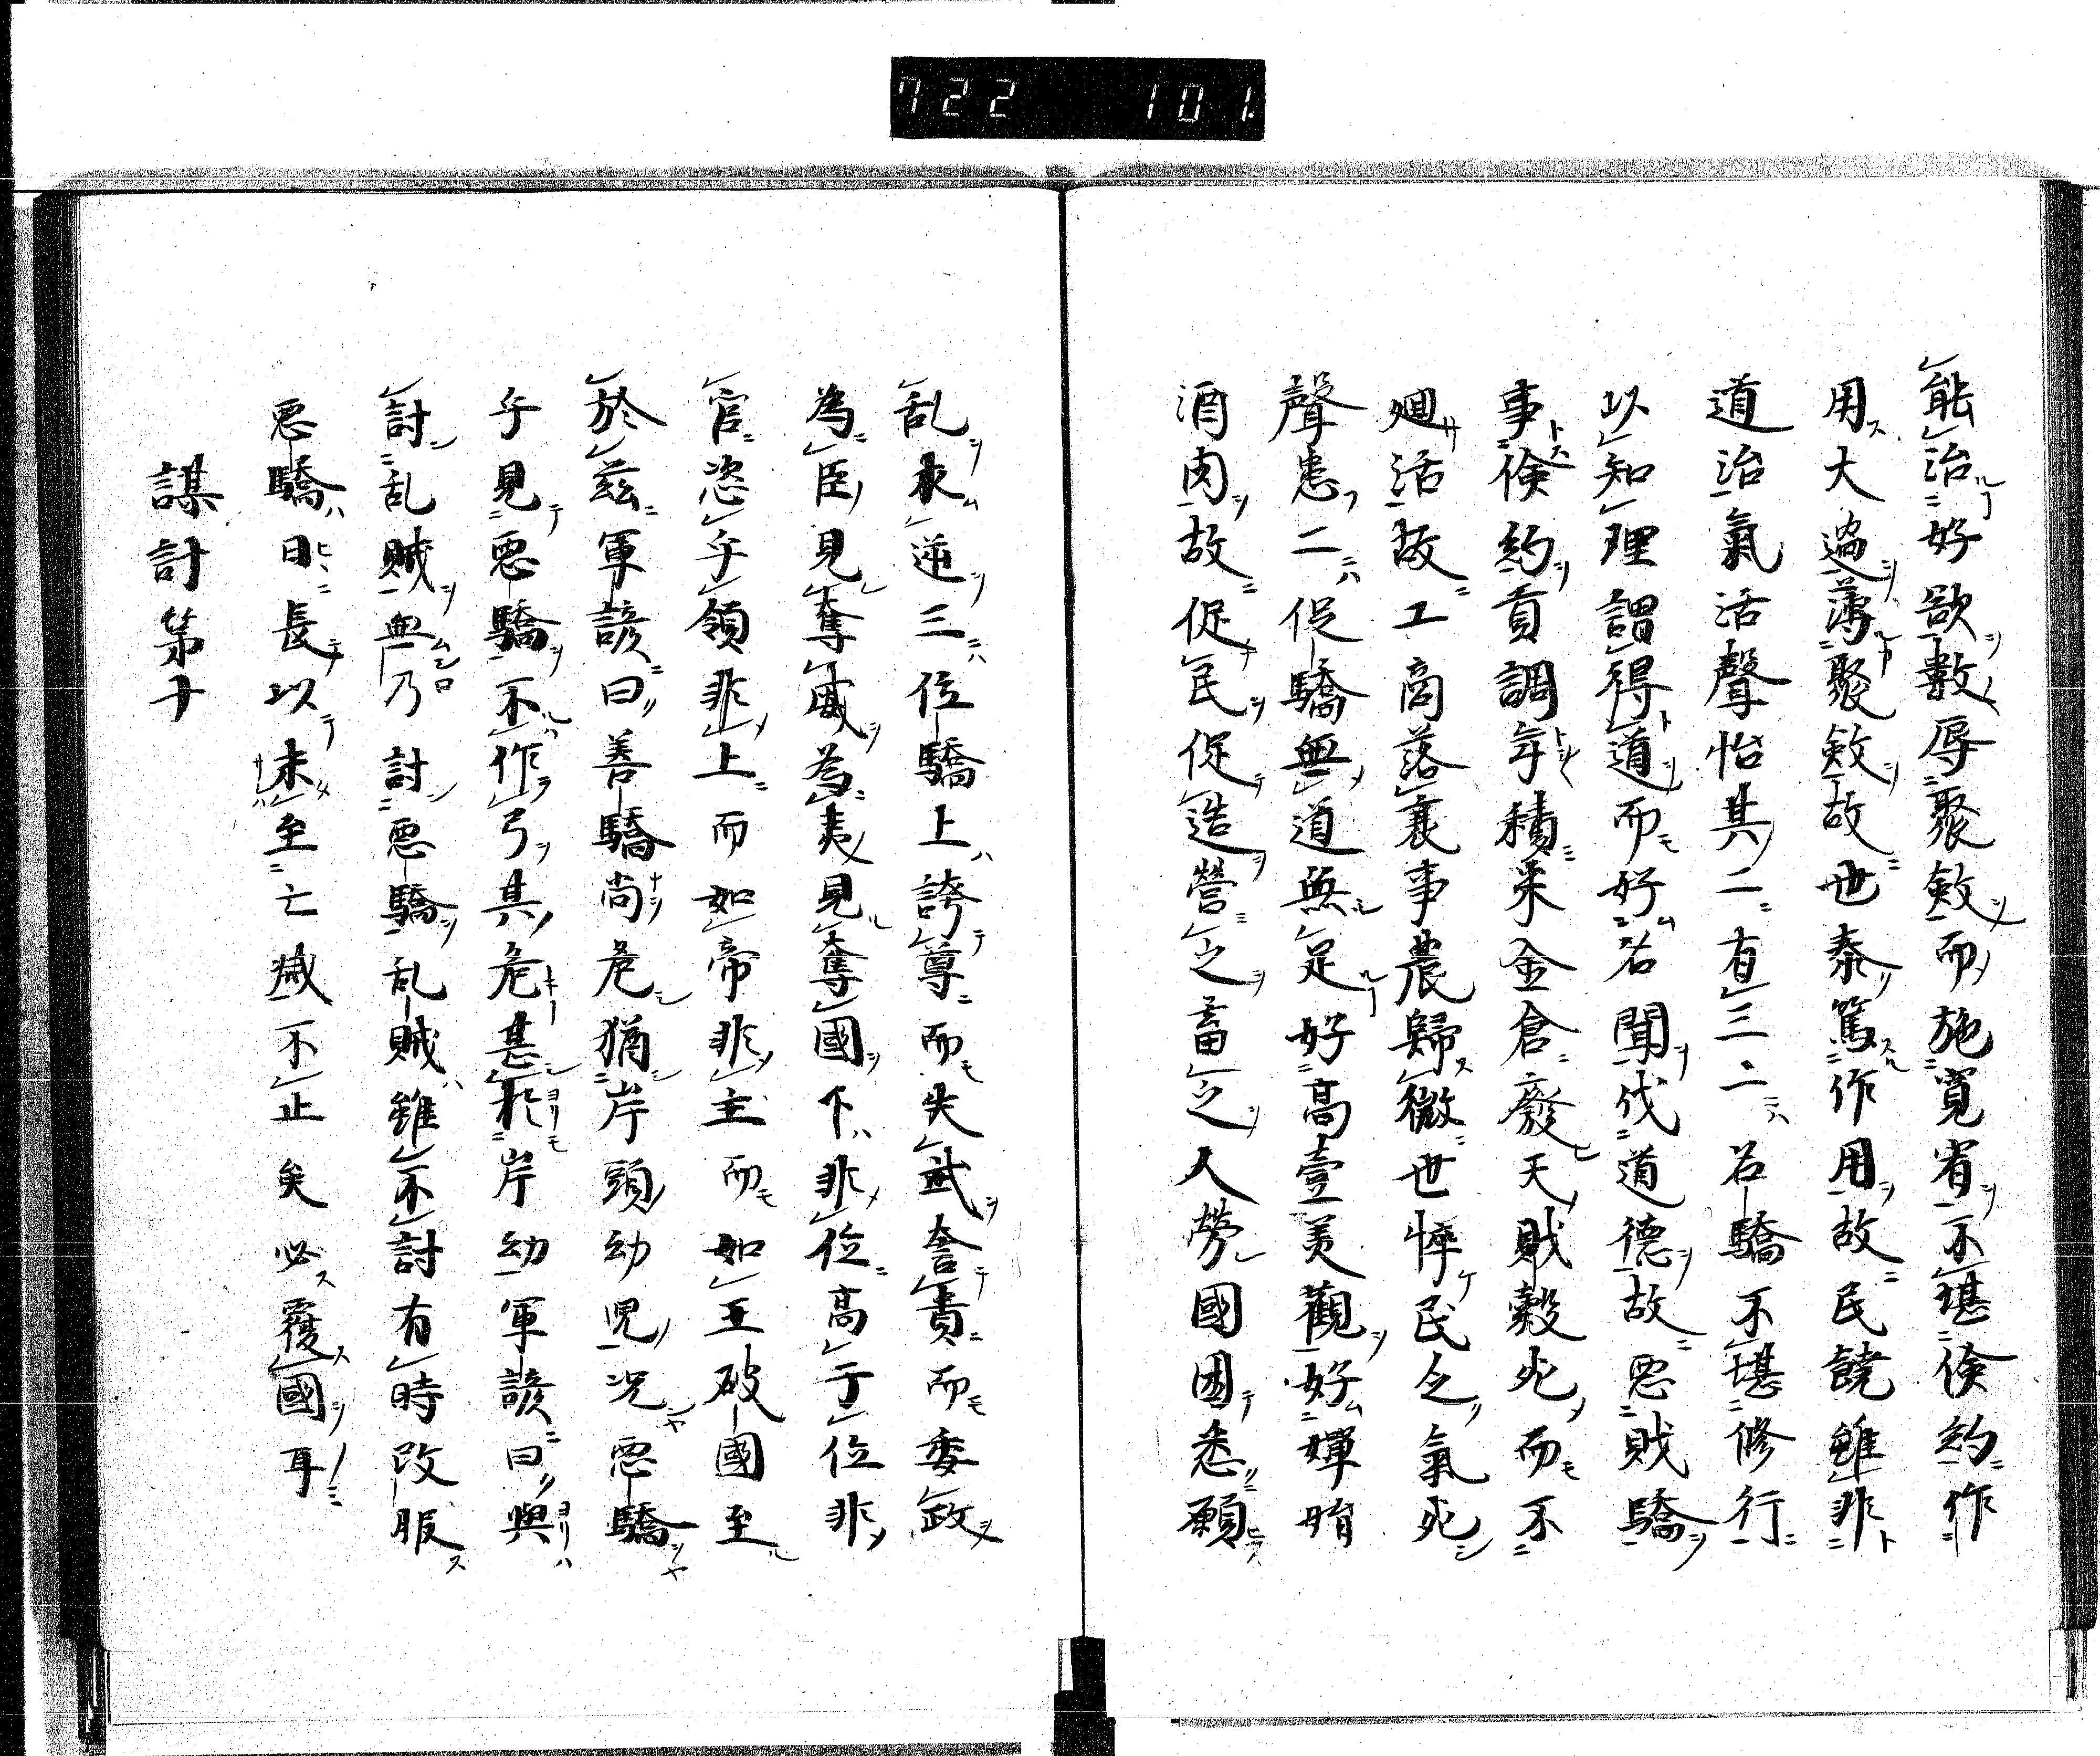 722 101.
能治好欲數辱聚斂而施寬省不堪儉約作
用大過薄聚斂故世泰篤作用故民饒雖非
道治氣活聲怡其二有三二名驕不堪修行
以知理謂得道而好名聞伐道德故惡賊驕
事儉約貢調年積釆金倉廢天賊穀死而不
廻活故工商落衰事農歸微世悴民亡氣死
聲患二促驕無道無足好高壹美觀好嬋
酒肉故促民促造營之畜之人勞國困悉願
乱求逆三位驕上誇尊而失武奢貴而委政
為臣見奪威為夷見奪國下非位高于位非
官恣乎領非上而如帝非主而如王破國至
於茲軍諺曰善驕尚危猶岸頭幼兒況惡驕
乎見惡驕不作弓其危甚於岸幼軍諺曰與
討乱賊無乃討惡驕乱賊雖不討有時改服
惡驕日長以未至亡滅不止矣必覆國耳
謀計第十